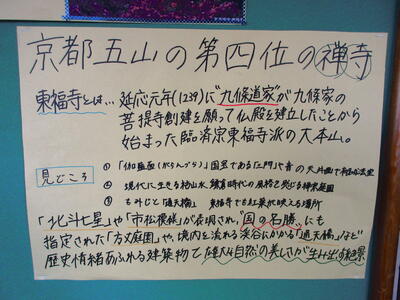 京都五山の第四位の禅寺
東福寺とは… 延応元年(1239)に"九條道家"が九條家の
菩提寺創建を願って仏殿を建立したことから
始まった臨済宗東福寺派の大本山。
見どころ
① 「伽藍面(がらんづら)」国宝である「三門」や昔の天井画で有名な法堂
② 現代に生きる枯山水、鎌倉時代の風格を感じる禅宗庭園
③ もみじと「通天橋」 東福寺でも紅葉が映える場所
「北斗七星」や「市松模様」が表現され、"国の名勝"にも
指定された「方丈庭園」や、境内を流れる渓谷にかかる「通天橋」など
歴史情緒あふれる建築物で雄大な自然の美しさが生み出す絶景